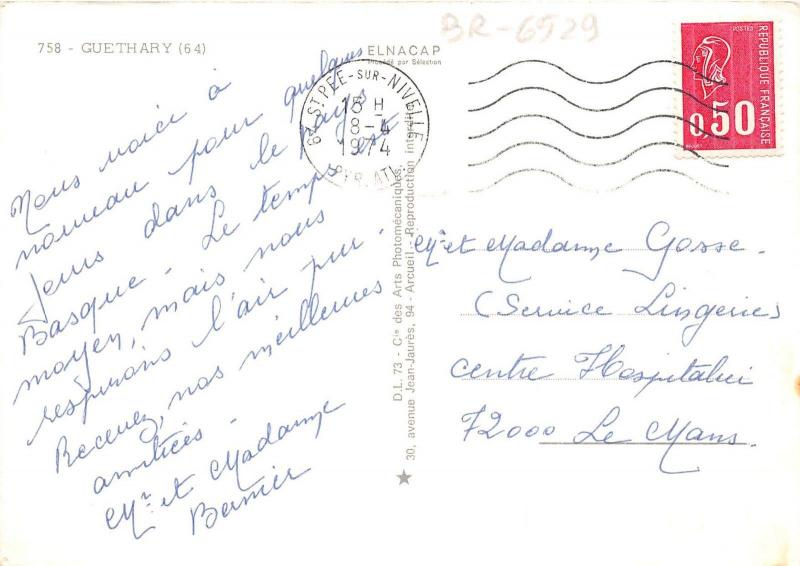 758 - GUETHARY (64)
ELNACAP
BR-6529
Nous voici à
nouveau pour quelques
jours dans le pays
Basque. Le temps est
moyen, mais nous
respirons l'air pur.
Recevez, nos meilleures
amitiés.
Mr et Madame
Bernier
64 ST.PEE-SUR-NIVELLE
15 H
8-4
1974
PYR. ATL.
POSTES
REPUBLIQUE FRANÇAISE
0,50
D.L. 73 - Cie des Arts Photomécaniques
30, avenue Jean-Jaurès, 94 - Arcueil - Reproduction interdite
Mr et Madame Gosse.
(Service Lingerie)
Centre Hospitalier
72000 Le Mans.